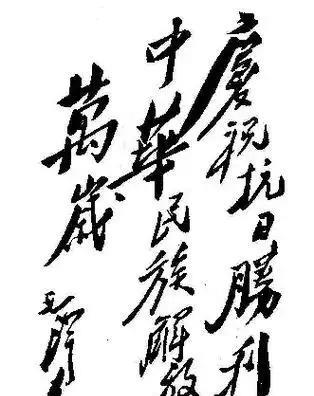 慶祝抗日勝利
中華民族解放
萬歲
毛澤